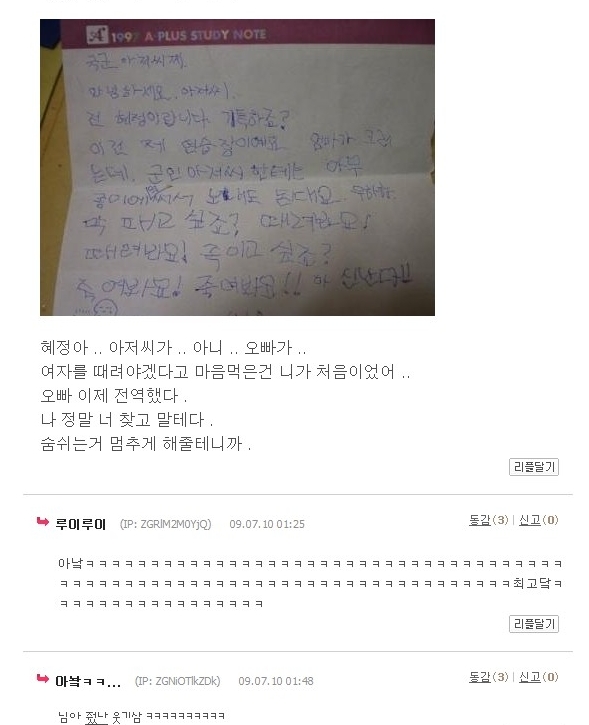 A 1997 A-PLUS STUDY NOTE
국군 아저씨께.
안녕하세요. 아저씨.
전 혜정이랍니다. 기특하죠?
이건 제 연습장이에요 엄마가 그러
는데, 군인 아저씨 한테는 아무
종이에 써서 보내도 된대요.
막 패고 싶죠? 때려봐요!
때려봐요! 죽이고 싶죠?
죽여봐요! 죽여봐요!! 아 신난다!!
혜정아 .. 아저씨가 .. 아니 .. 오빠가 ..
여자를 때려야겠다고 마음먹은건 니가 처음이었어 ..
오빠 이제 전역했다 .
나 정말 너 찾고 말테다 .
숨쉬는거 멈추게 해줄테니까 .
리플달기
루이루이 (IP: ZGRlM2M0YjQ) 09.07.10 01:25 동감(3) | 신고(0)
아낰ㅋㅋㅋㅋㅋㅋㅋㅋㅋㅋㅋㅋㅋㅋㅋㅋㅋㅋㅋㅋㅋㅋㅋㅋㅋㅋㅋㅋㅋㅋㅋ
ㅋㅋㅋㅋㅋㅋㅋㅋㅋㅋㅋㅋㅋㅋㅋㅋㅋㅋㅋㅋㅋㅋㅋㅋㅋㅋㅋㅋ최고닼ㅋ
ㅋㅋㅋㅋㅋㅋㅋㅋㅋㅋㅋㅋㅋ
리플달기
아놬ㅋㅋ... (IP: ZGNiOTlkZDk) 09.07.10 01:48 동감(3) | 신고(0)
님아 줬난 웃기삼 ㅋㅋㅋㅋㅋㅋㅋㅋㅋㅋ